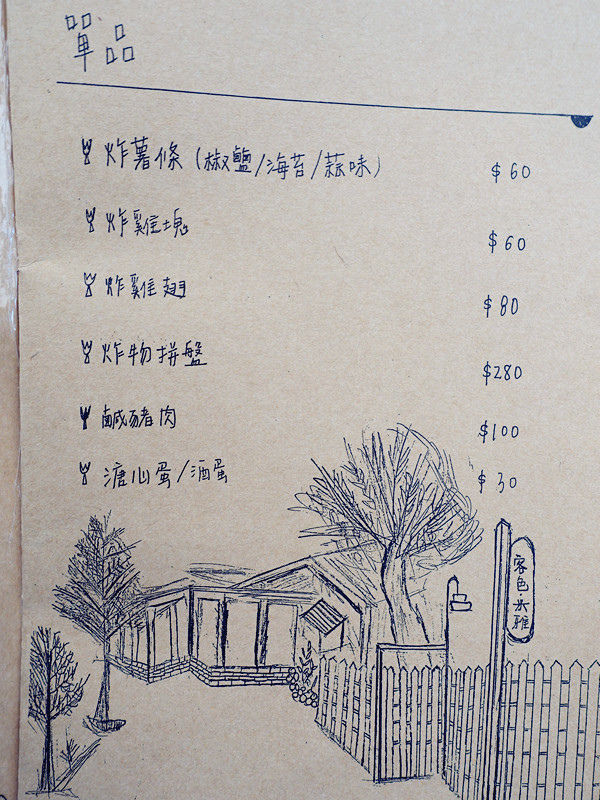 單品
炸薯條（椒鹽/海苔/蒜味） $60
炸雞塊 $60
炸雞翅 $80
炸物拼盤 $280
鹹豬肉 $100
溏心蛋/酒蛋 $30